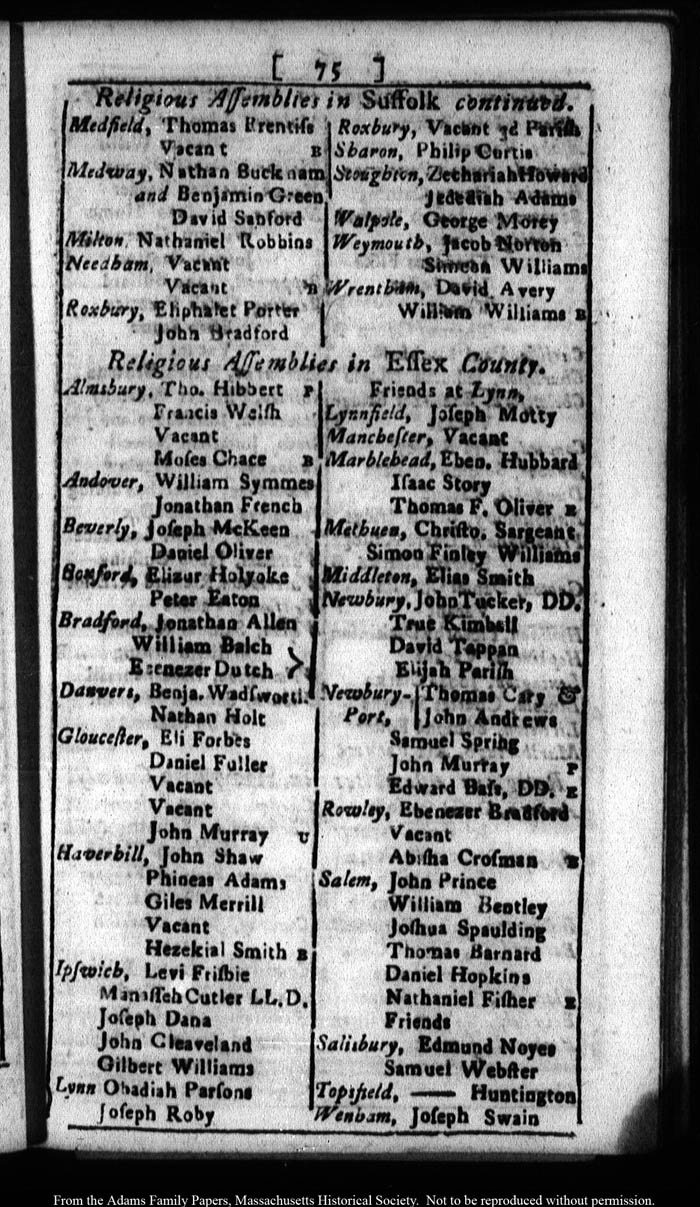 [ 75 ]
Religious Aſſemblies in Suffolk continued.
Medfield, Thomas Prentiſs
Vacant B
Medway, Nathan Bucknam
and Benjamin Green
David Sanford
Milton, Nathaniel Robbins
Needham, Vacant
Vacant B
Roxbury, Eliphalet Porter
John Bradford
Roxbury, Vacant 3d Pariſh
Sharon, Philip Curtis
Stoughton, Zechariah Howard
Jedediah Adams
Walpole, George Morey
Weymouth, Jacob Norton
Simeon Williams
Wrentham, David Avery
William Williams B
Religious Aſſemblies in Eſſex County.
Almsbury, Tho. Hibbert P
Francis Welſh
Vacant
Moſes Chace B
Andover, William Symmes
Jonathan French
Beverly, Joſeph McKeen
Daniel Oliver
Boxford, Elizur Holyoke
Peter Eaton
Bradford, Jonathan Allen
William Balch
Ebenezer Dutch }
Danvers, Benja. Wadſworth
Nathan Holt
Glouceſter, Eli Forbes
Daniel Fuller
Vacant
Vacant
John Murray U
Haverhill, John Shaw
Phineas Adams
Giles Merrill
Vacant
Hezekial Smith B
Ipſwich, Levi Friſbie
Manaſſeh Cutler LL.D.
Joſeph Dana
John Cleaveland
Gilbert Williams
Lynn Obadiah Parſons
Joſeph Roby
Friends at Lynn,
Lynnfield, Joſeph Motty
Mancheſter, Vacant
Marblehead, Eben. Hubbard
Iſaac Story
Thomas F. Oliver E
Methuen, Chriſto. Sargeant
Simon Finley Williams
Middleton, Elias Smith
Newbury, John Tucker, DD.
True Kimball
David Tappan
Elijah Pariſh
Newbury- Thomas Cary &
Port, John Andrews
Samuel Spring
John Murray P
Edward Baſs, DD. E
Rowley, Ebenezer Bradford
Vacant
Abiſha Croſman B
Salem, John Prince
William Bentley
Joſhua Spaulding
Thomas Barnard
Daniel Hopkins
Nathaniel Fiſher E
Friends
Saliſbury, Edmund Noyes
Samuel Webſter
Topsfield, —— Huntington
Wenham, Joſeph Swain
From the Adams Family Papers, Massachusetts Historical Society. Not to be reproduced without permission.